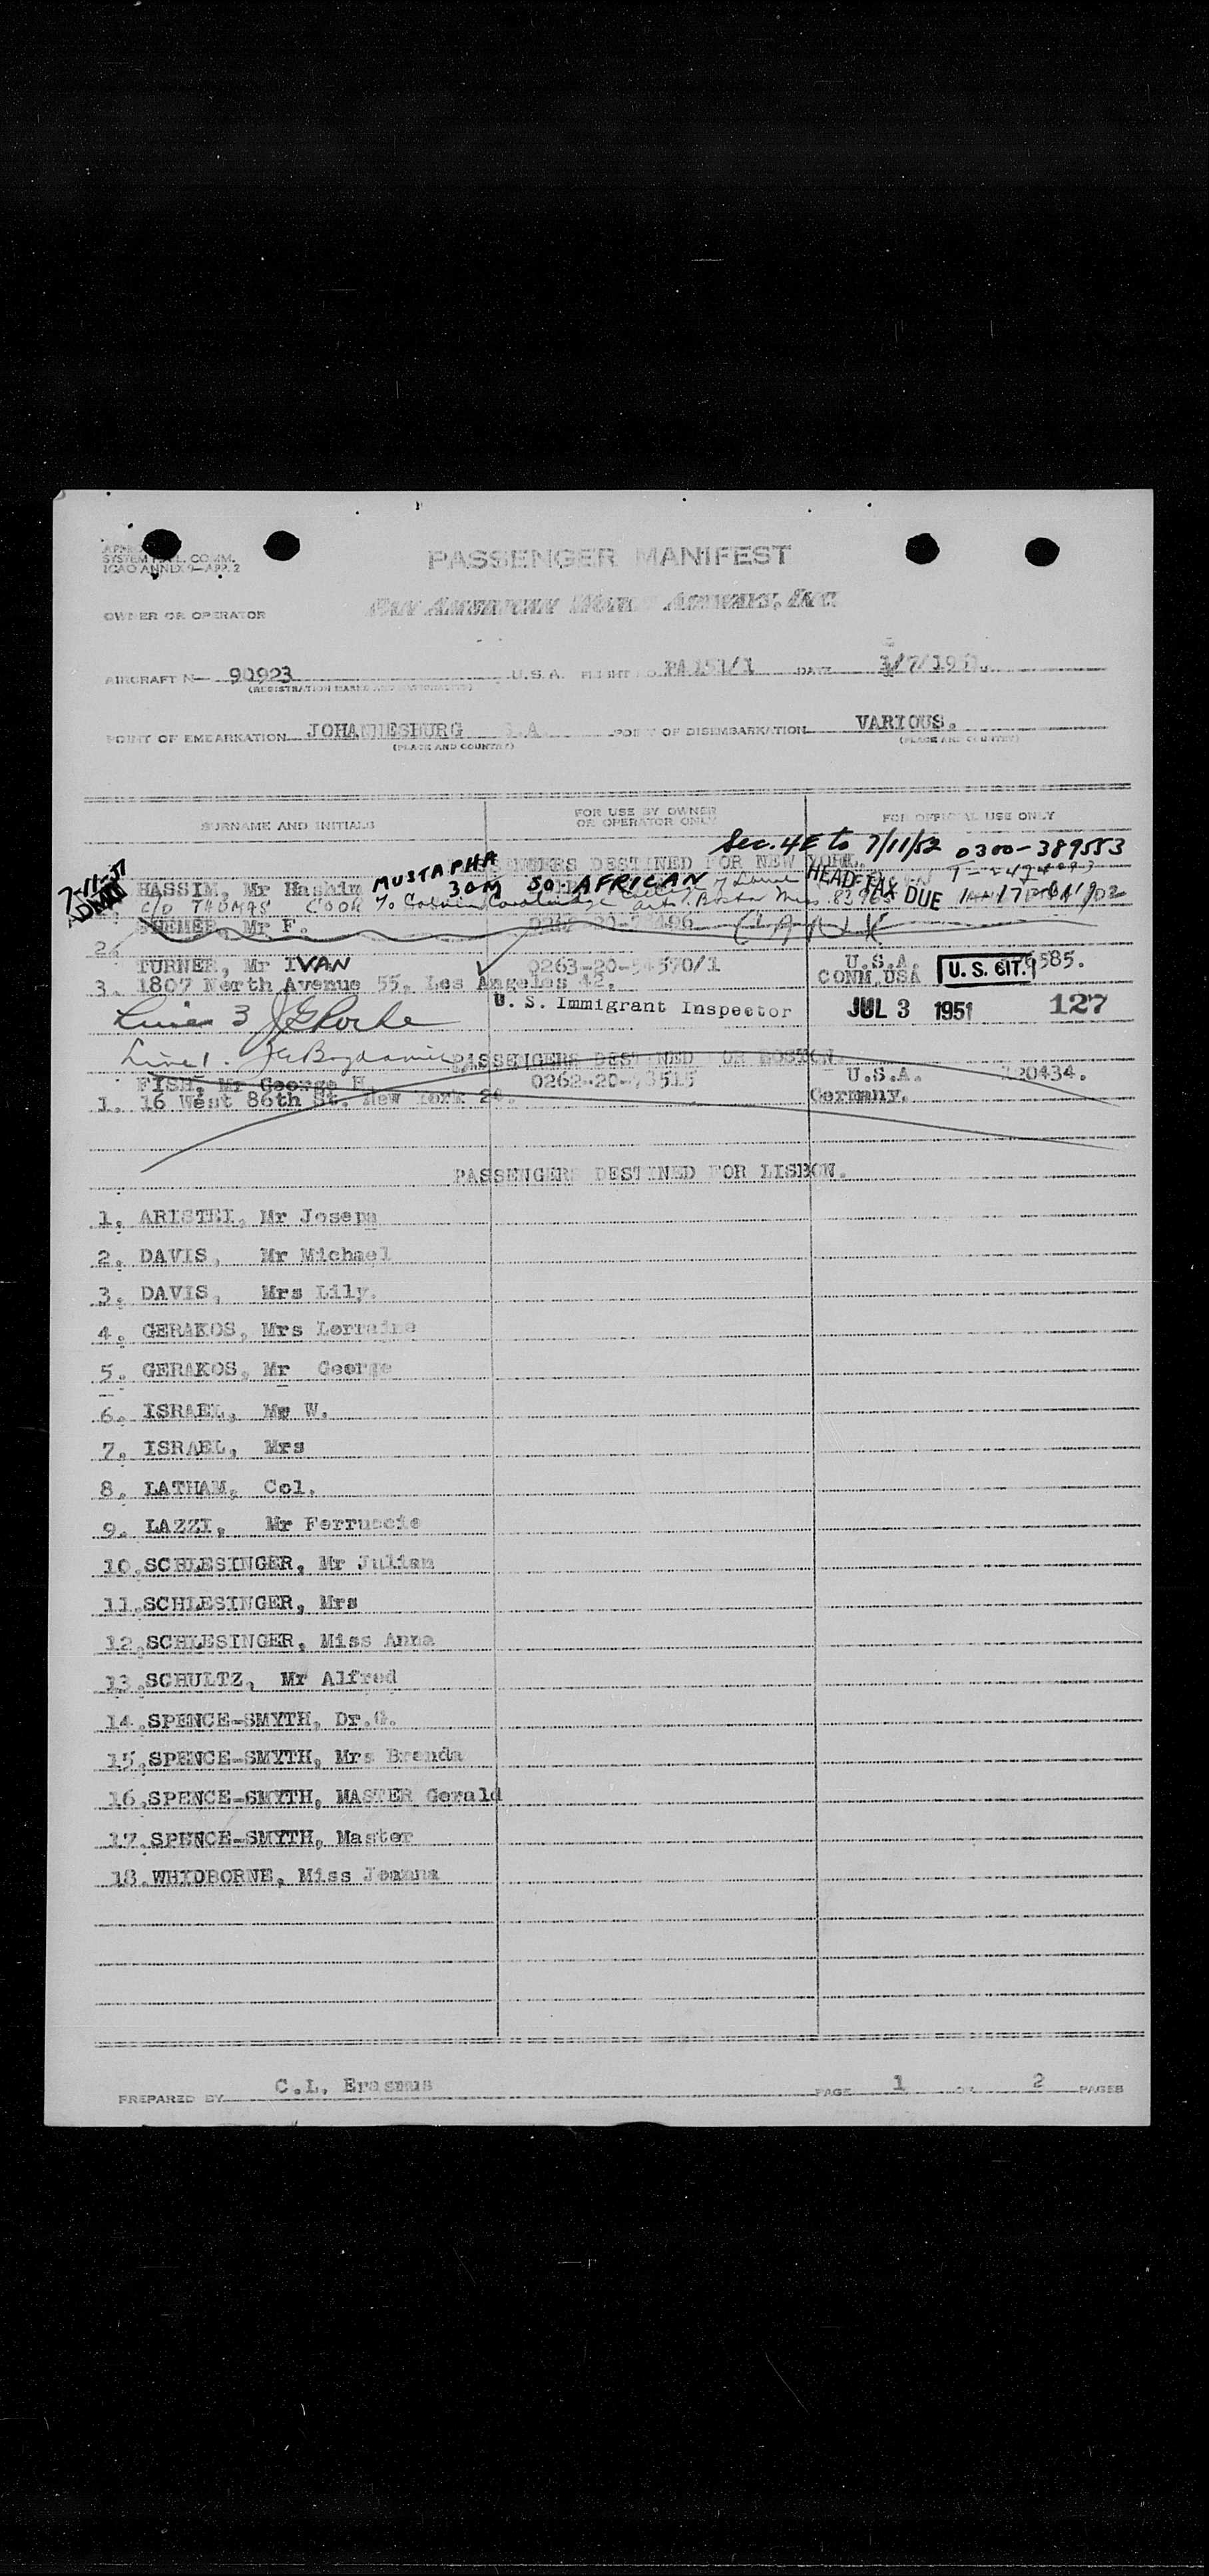 SYSTEM COMM.
ICAO ANNEX 9—APP. 2
PASSENGER MANIFEST
OWNER OR OPERATOR
PAN AMERICAN WORLD AIRWAYS, INC.
AIRCRAFT N— 90923 U.S.A. FLIGHT NO. PA151/1 DATE 1/7/1951.
(REGISTRATION MARKS AND NATIONALITY)
POINT OF EMBARKATION JOHANNESBURG S.A. POINT OF DISEMBARKATION VARIOUS.
(PLACE AND COUNTRY) (PLACE AND COUNTRY)
SURNAME AND INITIALS FOR USE BY OWNER OR OPERATOR ONLY FOR OFFICIAL USE ONLY
Sec. 4E to 7/11/52 0300-389553
PASSENGERS DESTINED FOR NEW YORK.
7-11-51
ADMIT
HASSIM, Mr Hashim MUSTAPHA
30M SO. AFRICAN HEAD TAX DUE
c/o THOMAS COOK
2. Mr F.
TURNER, Mr IVAN 0263-20-54570/1 U.S.A. U.S. CIT. 585.
3. 1807 North Avenue 55, Los Angeles 42. CONM.USA
U. S. Immigrant Inspector JUL 3 1951 127
Line 3
Line 1.
PASSENGERS DESTINED FOR BOSTON.
FISH, Mr George H. 0262-20-73515 U.S.A. 120434.
1. 16 West 86th St. New York 24. Germany.
PASSENGERS DESTINED FOR LISBON.
1. ARISTEI, Mr Joseph
2. DAVIS, Mr Michael
3. DAVIS, Mrs Lily.
4. GERAKOS, Mrs Lorraine
5. GERAKOS, Mr George
6. ISRAEL, Mr W.
7. ISRAEL, Mrs
8. LATHAM, Col.
9. LAZZI, Mr Ferruccio
10. SCHLESINGER, Mr Julian
11. SCHLESINGER, Mrs
12. SCHLESINGER, Miss Anna
13. SCHULTZ, Mr Alfred
14. SPENCE-SMYTH, Dr.G.
15. SPENCE-SMYTH, Mrs Brenda
16. SPENCE-SMYTH, MASTER Gerald
17. SPENCE-SMYTH, Master
18. WHIDBORNE, Miss Joanna
PREPARED BY C.L. Erasmus PAGE 1 OF 2 PAGES